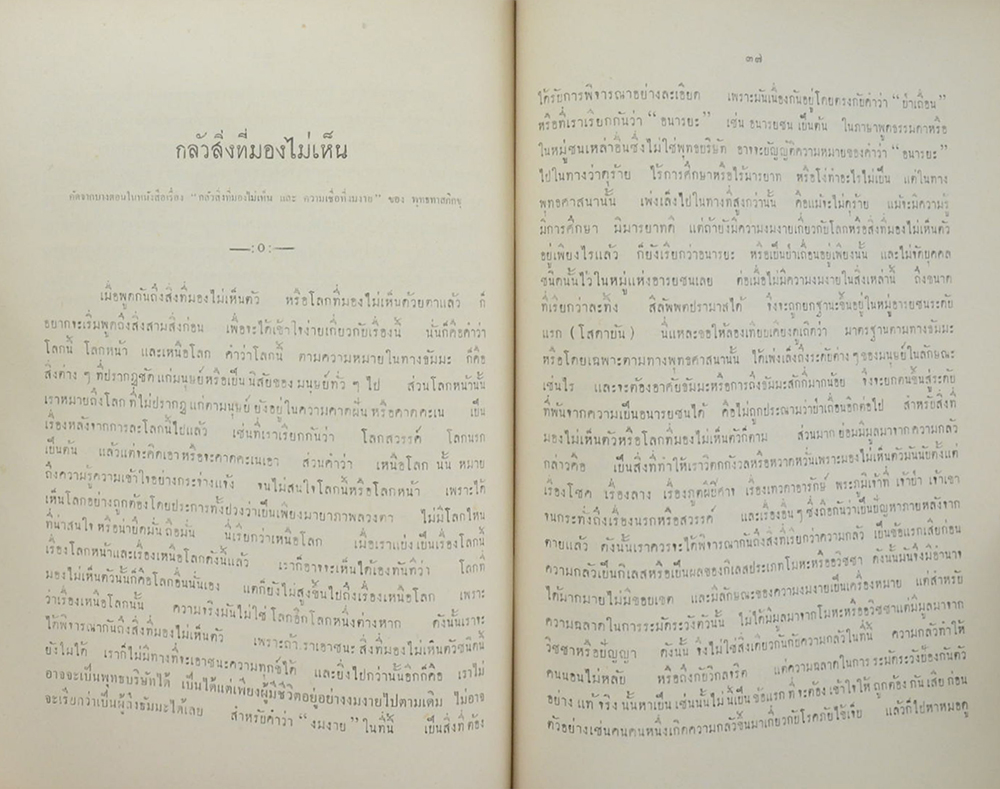 กลัวสิ่งที่มองไม่เห็น
คัดจากบางตอนในหนังสือเรื่อง “กลัวสิ่งที่มองไม่เห็น และ ความเชื่อที่งมงาย” ของ พุทธทาสภิกขุ
—:o:—
เมื่อพูดกันถึงสิ่งที่มองไม่เห็นตัว หรือโลกที่มองไม่เห็นด้วยตาแล้ว ก็
อยากจะเริ่มพูดถึงสิ่งสามสิ่งก่อน เพื่อจะได้เข้าใจง่ายเกี่ยวกับเรื่องนี้ นั่นก็คือคำว่า
โลกนี้ โลกหน้า และเหนือโลก คำว่าโลกนี้ ตามความหมายในทางธัมมะ ก็คือ
สิ่งต่าง ๆ ที่ปรากฏชัดแก่มนุษย์หรือเป็นนิสัยของมนุษย์ทั่ว ๆ ไป ส่วนโลกหน้านั้น
เราหมายถึงโลกที่ไม่ปรากฏแก่ตามนุษย์ ยังอยู่ในความคาดฝัน หรือคาดคะเน เป็น
เรื่องหลังจากการละโลกนี้ไปแล้ว เช่นที่เราเรียกกันว่า โลกสวรรค์ โลกนรก
เป็นต้น แล้วแต่จะคิดเอาหรือจะคาดคะเนเอา ส่วนคำว่า เหนือโลก นั้น หมาย
ถึงความรู้ความเข้าใจอย่างกระจ่างแจ้ง จนไม่สนใจโลกนี้หรือโลกหน้า เพราะได้
เห็นโลกอย่างถูกต้องโดยประการทั้งปวงว่าเป็นเพียงมายาภาพลวงตา ไม่มีโลกไหน
ที่น่าสนใจ หรือน่ายึดมั่น ถือมั่น นี่เรียกว่าเหนือโลก เมื่อเราแบ่งเป็นเรื่องโลกนี้
เรื่องโลกหน้าและเรื่องเหนือโลกดังนี้แล้ว เราก็อาจจะเห็นได้เองทันทีว่า โลกที่
มองไม่เห็นตัวนั้นก็คือโลกอื่นนั่นเอง แต่ก็ยังไม่สูงขึ้นไปถึงเรื่องเหนือโลก เพราะ
ว่าเรื่องเหนือโลกนั้น ความจริงมันไม่ใช่โลกอีกโลกหนึ่งต่างหาก ดังนั้นเราจะ
ได้พิจารณากันถึงสิ่งที่มองไม่เห็นตัว เพราะถ้าเราเอาชนะสิ่งที่มองไม่เห็นตัวชนิดนี้
ยังไม่ได้ เราก็ไม่มีทางที่จะเอาชนะความทุกข์ได้ และยิ่งไปกว่านั้นอีกก็คือ เราไม่
อาจจะเป็นพุทธบริษัทได้ เป็นได้แต่เพียงผู้มีชีวิตอยู่อย่างงมงายไปตามเดิม ไม่อาจ
จะเรียกว่าเป็นผู้ถึงธัมมะได้เลย สำหรับคำว่า “งมงาย” ในที่นี้ เป็นสิ่งที่ต้อง
๓๗
ได้รับการพิจารณาอย่างละเอียด เพราะมันเนื่องกันอยู่โดยตรงกับคำว่า “ป่าเถื่อน”
หรือที่เราเรียกกันว่า “อนารยะ” เช่น อนารยชน เป็นต้น ในภาษาพูดธรรมดาหรือ
ในหมู่ชนเหล่าอื่นซึ่งไม่ใช่พุทธบริษัท อาจจะบัญญัติความหมายของคำว่า “อนารยะ”
ไปในทางว่าดุร้าย ไร้การศึกษาหรือไร้มารยาท หรือโง่ทำอะไรไม่เป็น แต่ในทาง
พุทธศาสนานั้น เพ่งเล็งไปในทางที่สูงกว่านั้น คือแม้จะไม่ดุร้าย แม้จะมีความรู้
มีการศึกษา มีมารยาทดี แต่ถ้ายังมีความงมงายเกี่ยวกับโลกหรือสิ่งที่มองไม่เห็นตัว
อยู่เพียงไรแล้ว ก็ยังเรียกว่าอนารยะ หรือเป็นป่าเถื่อนอยู่เพียงนั้น และไม่จัดบุคคล
ชนิดนั้นไว้ในหมู่แห่งอารยชนเลย ต่อเมื่อไม่มีความงมงายในสิ่งเหล่านี้ ถึงขนาด
ที่เรียกว่าละทิ้ง สีลัพพตปรามาสได้ จึงจะถูกยกฐานะขึ้นอยู่ในหมู่อารยชนระดับ
แรก (โสดาบัน) นี่แหละขอให้ลองเทียบเคียงดูเถิดว่า มาตรฐานตามทางธัมมะ
หรือโดยเฉพาะตามทางพุทธศาสนานั้น ได้เพ่งเล็งถึงระดับต่าง ๆ ของมนุษย์ในลักษณะ
เช่นไร และจะต้องอาศัยธัมมะหรือการถึงธัมมะสักกี่มากน้อย จึงจะยกตนขึ้นสู่ระดับ
ที่พ้นจากความเป็นอนารยชนได้ คือไม่ถูกประณามว่าป่าเถื่อนอีกต่อไป สำหรับสิ่งที่
มองไม่เห็นตัวหรือโลกที่มองไม่เห็นตัวก็ตาม ส่วนมาก ย่อมมีมูลมาจากความกลัว
กล่าวคือ เป็นสิ่งที่ทำให้เราวิตกกังวลหรือหวาดหวั่นเพราะมองไม่เห็นตัวมันนับตั้งแต่
เรื่องโชค เรื่องลาง เรื่องภูตผีปีศาจ เรื่องเทวดาอารักษ์ พระภูมิเจ้าที่ เจ้าป่า เจ้าเขา
จนกระทั่งถึงเรื่องนรกหรือสวรรค์ และเรื่องอื่นๆ ซึ่งถือกันว่าเป็นปัญหาภายหลังจาก
ตายแล้ว ดังนั้นเราควรจะได้พิจารณากันถึงสิ่งที่เรียกว่าความกลัว เป็นข้อแรกเสียก่อน
ความกลัวเป็นกิเลสหรือเป็นผลของกิเลสประเภทโมหะหรืออวิชชา ดังนั้นมันจึงมีอำนาจ
ได้มากมายไม่มีขอบเขต และมีลักษณะของความงมงายเป็นเครื่องหมาย แต่สำหรับ
ความฉลาดในการระมัดระวังตัวนั้น ไม่ได้มีมูลมาจากโมหะหรืออวิชชาแต่มีมูลมาจาก
วิชชาหรือปัญญา ดังนั้น จึงไม่ใช่สิ่งเดียวกันกับความกลัวในที่นี้ ความกลัวทำให้
คนนอนไม่หลับ หรือถึงกับวิกลจริต แต่ความฉลาดในการระมัดระวังป้องกันตัว
อย่างแท้จริงนั้นหาเป็นเช่นนั้นไม่นี่เป็นข้อแรกที่จะต้องเข้าใจให้ถูกต้องกันเสียก่อน
ตัวอย่างเช่นคนคนหนึ่งเกิดความกลัวขึ้นมาเกี่ยวกับโรคภัยไข้เจ็บ แล้วก็ไปหาหมอดู